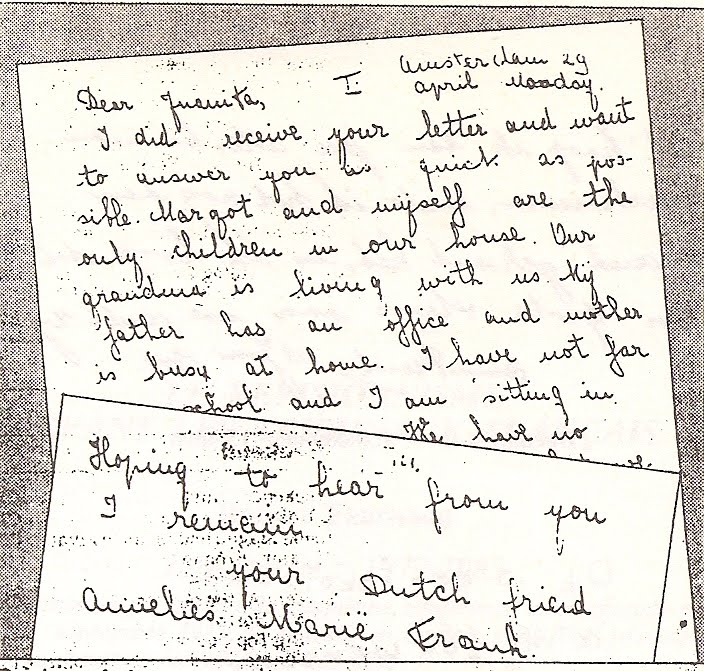 Amsterdam 29
April Monday.
Dear Juanita, I
I did receive your letter and want
to answer you as quick as pos-
sible. Margot and myself are the
only children in our house. Our
grandma is living with us. My
father has an office and mother
is busy at home. I have not far
school and I am sitting in
We have no
Hoping to hear from you
I remain
your Dutch friend
Annelies Marië Frank.